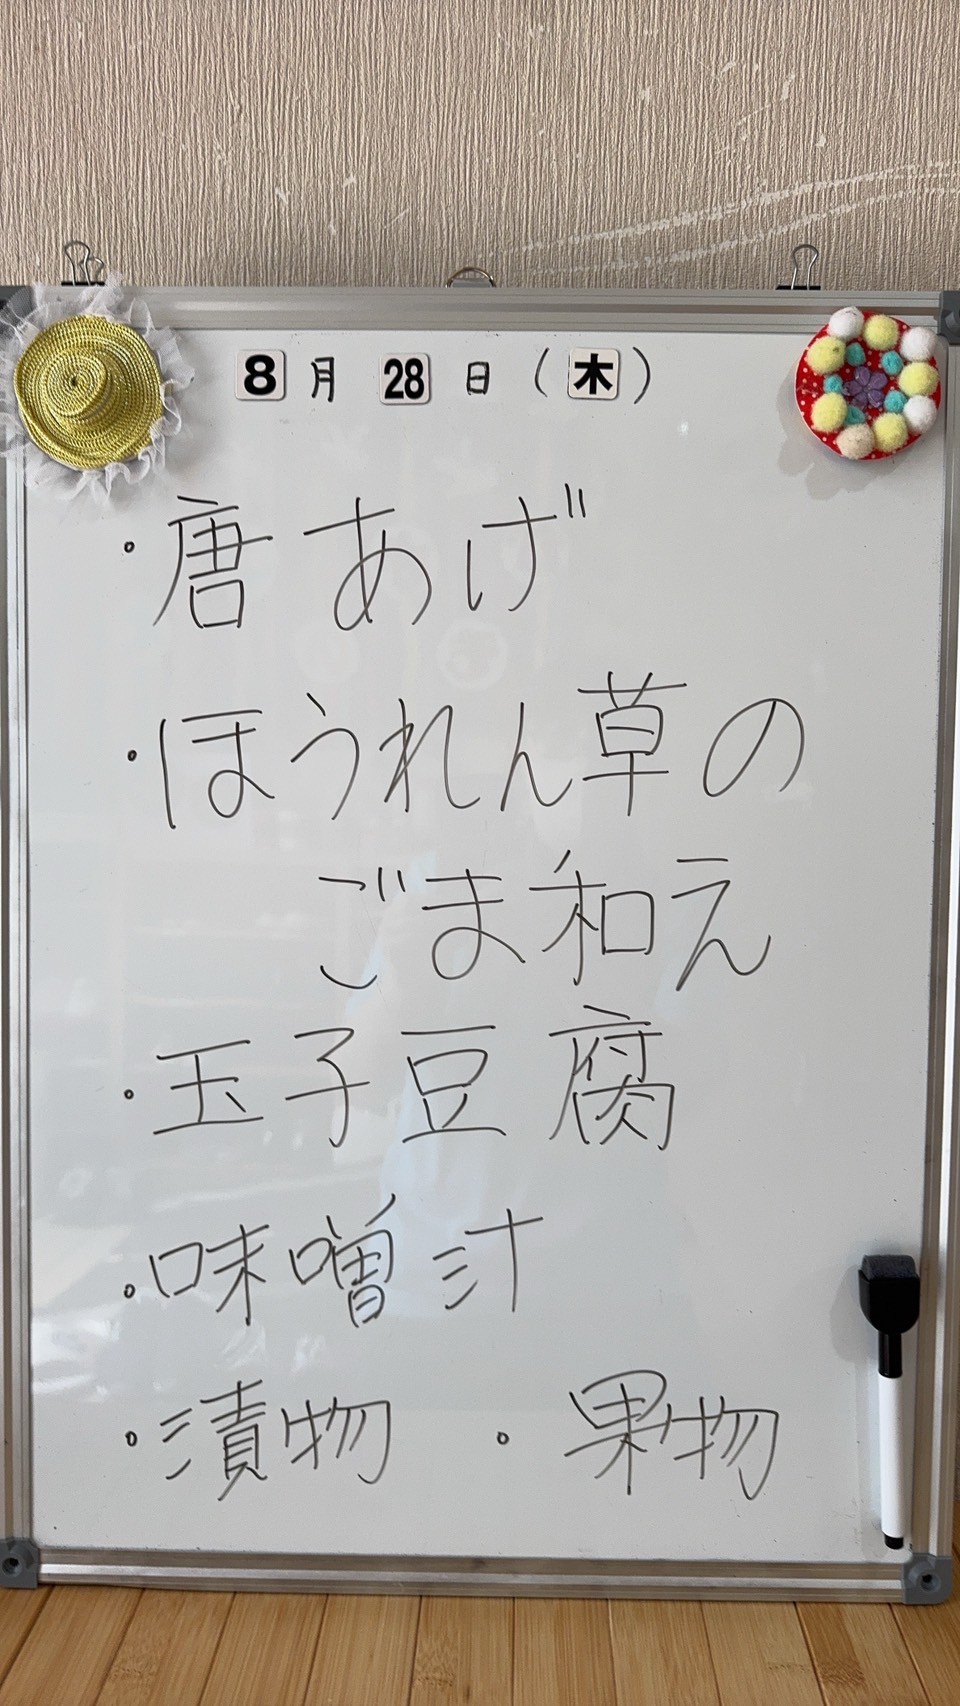 8月28日(木)
・唐あげ
・ほうれん草の
ごま和え
・玉子豆腐
・味噌汁
・漬物 ・果物